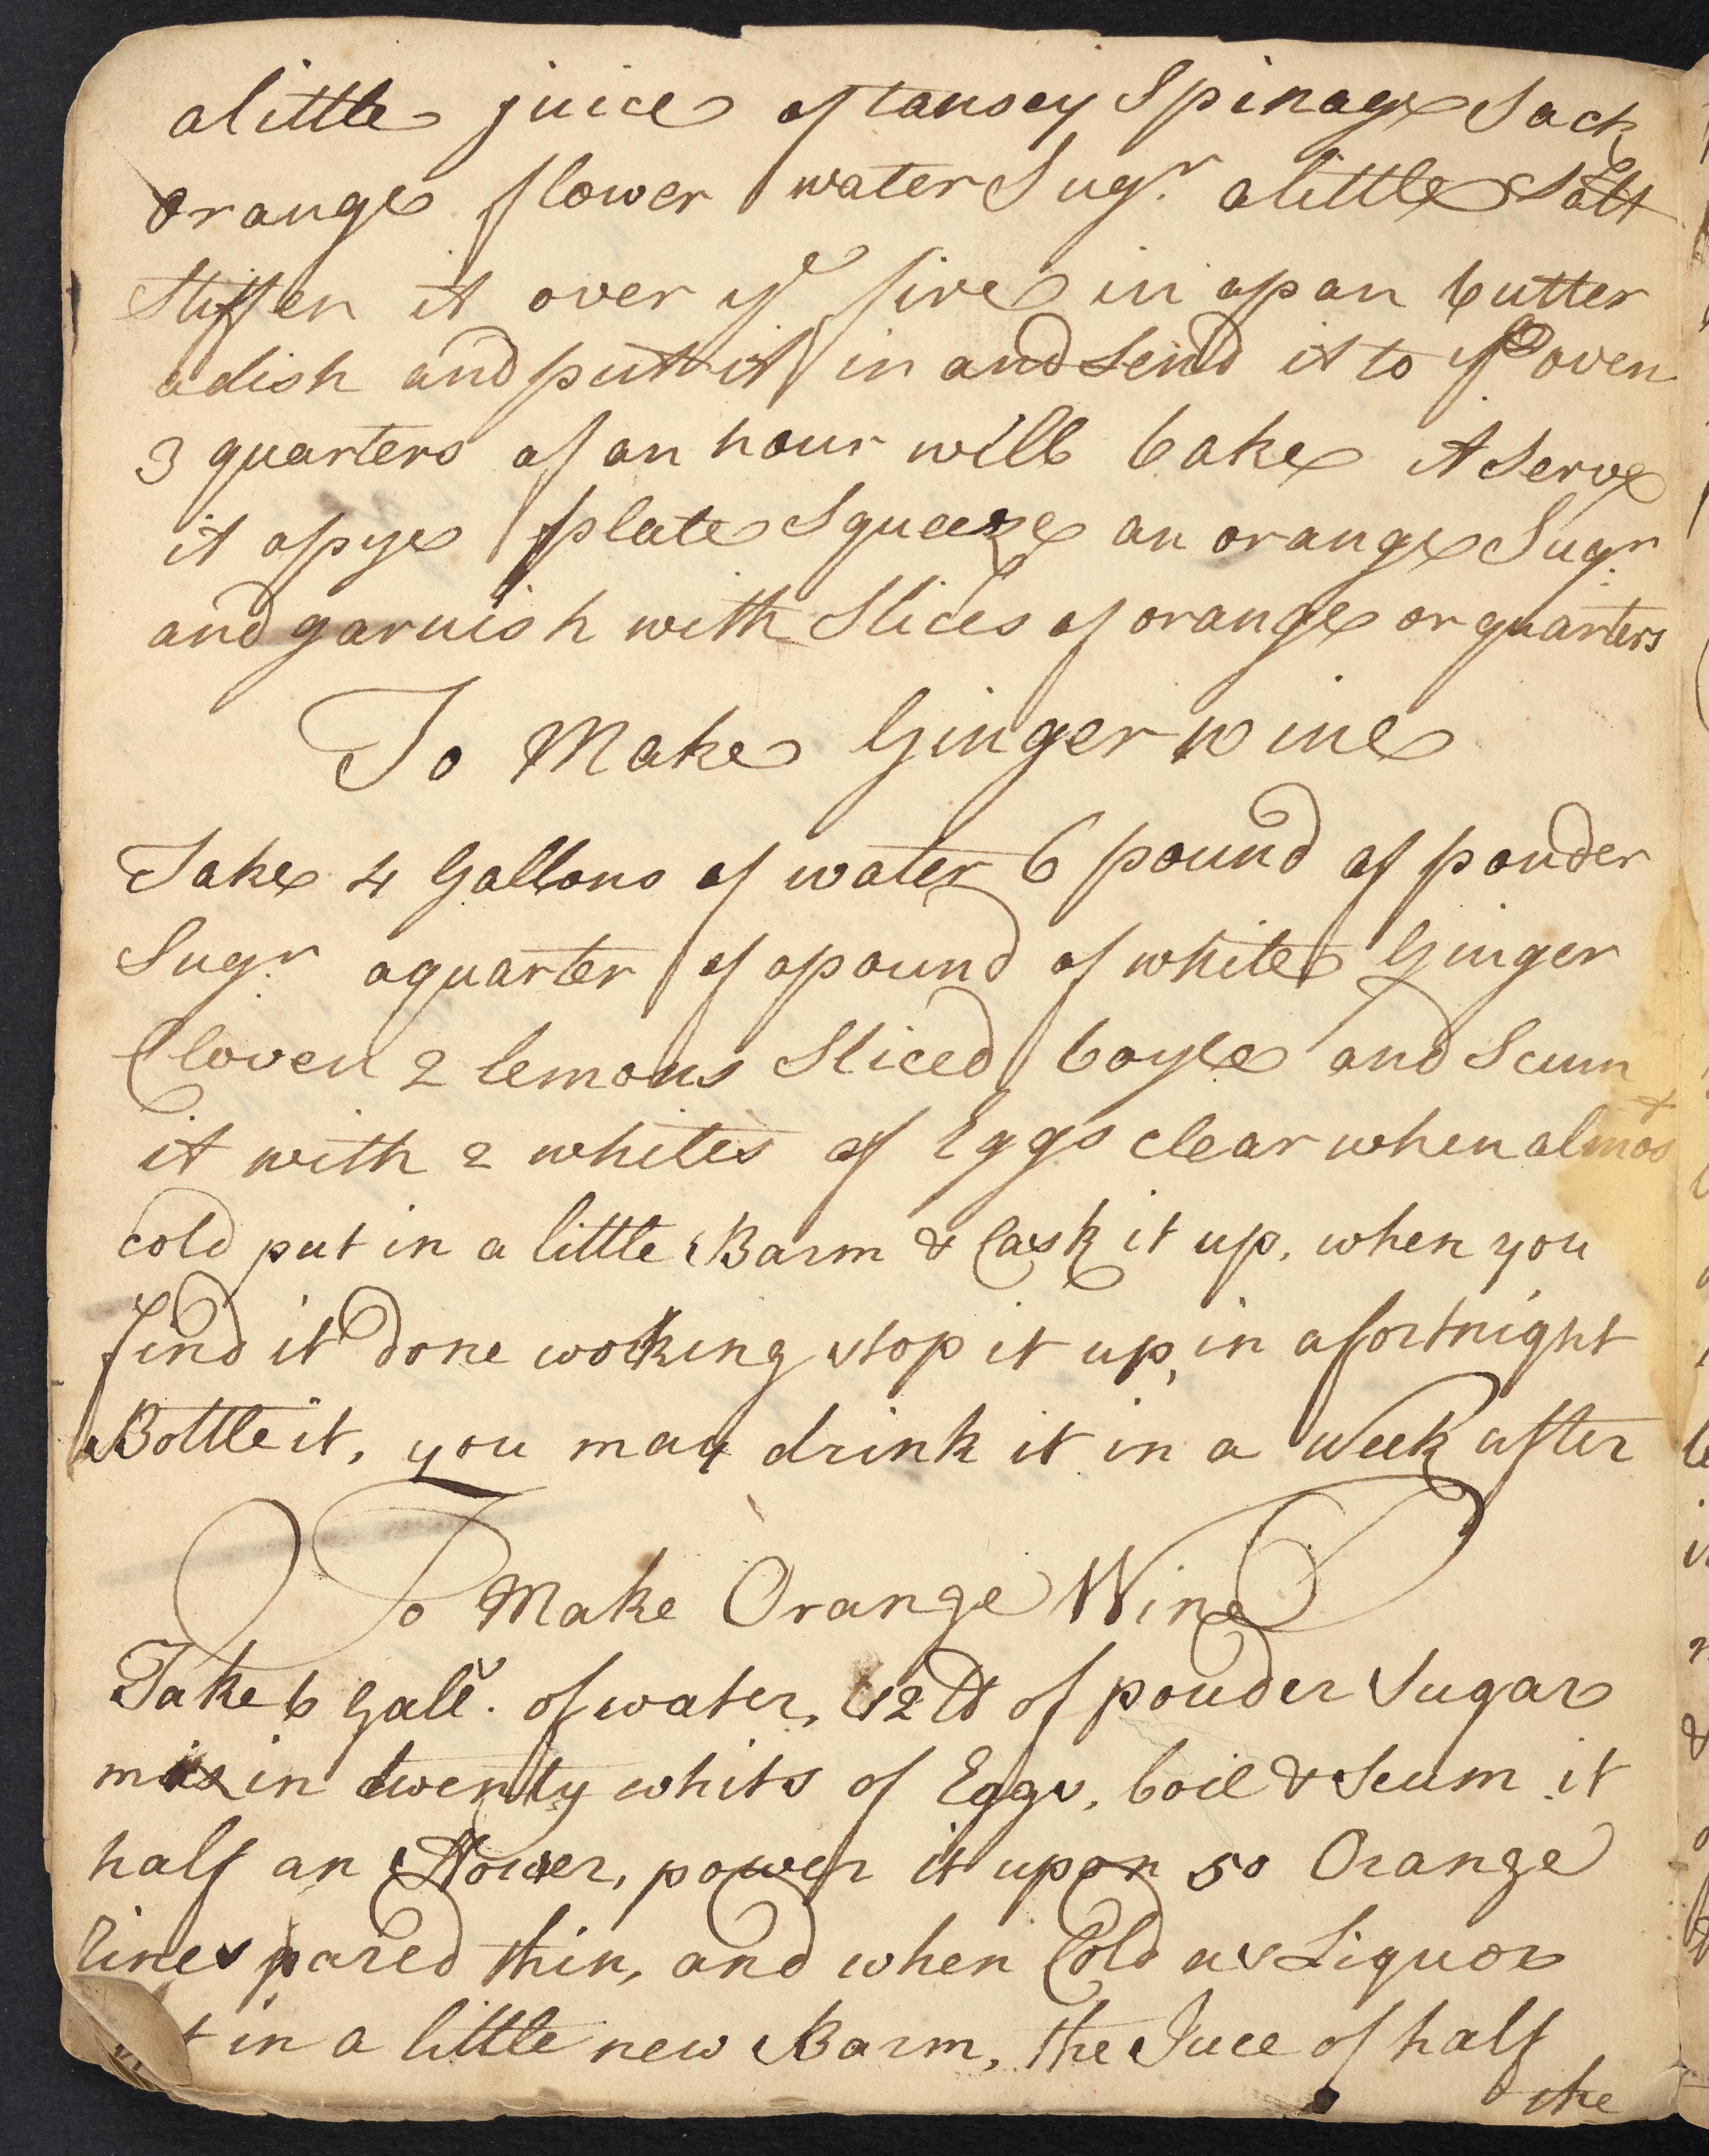 a little juice of tansey Spinage Sack
orange flower water Sugr. a little Salt
Stiffen it over ye fire in a pan butter
a dish and put it in and send it to ye oven
3 quarters of an hour will bake it Serve
it a pye plate Squeeze an orange Sugr.
and garnish with Slices of orange or quarters
To Make Ginger wine
Take 4 Gallons of water 6 pound of pouder
Sugr. a quarter of a pound of white Ginger
Cloven 2 lemons Sliced boyle and Scum
it with 2 whites of Eggs clear when almost
cold put in a little Barm & Cask it up, when you
find it done working stop it up, in a fortnight
Bottle it, you may drink it in a Week after
To Make Orange Wine
Take 6 Galls. of water, 12 lb of pouder Sugar
mix in twenty whits of Eggs, boil & Scum it
half an Hower, power it upon 50 Orange
rines pared thin, and when Cold as Liquor
in a little new Barm, the Juce of half
the